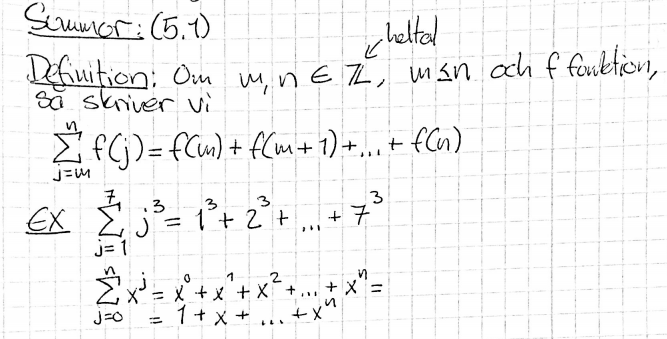 Summor: (5.1)
heltal
Definition: Om m, n ∈ ℤ, m ≤ n och f funktion,
så skriver vi
∑_{j=m}^{n} f(j) = f(m) + f(m+1) + ... + f(n)
EX ∑_{j=1}^{7} j³ = 1³ + 2³ + ... + 7³
∑_{j=0}^{n} x^j = x⁰ + x¹ + x² + ... + xⁿ =
= 1 + x + ... + xⁿ